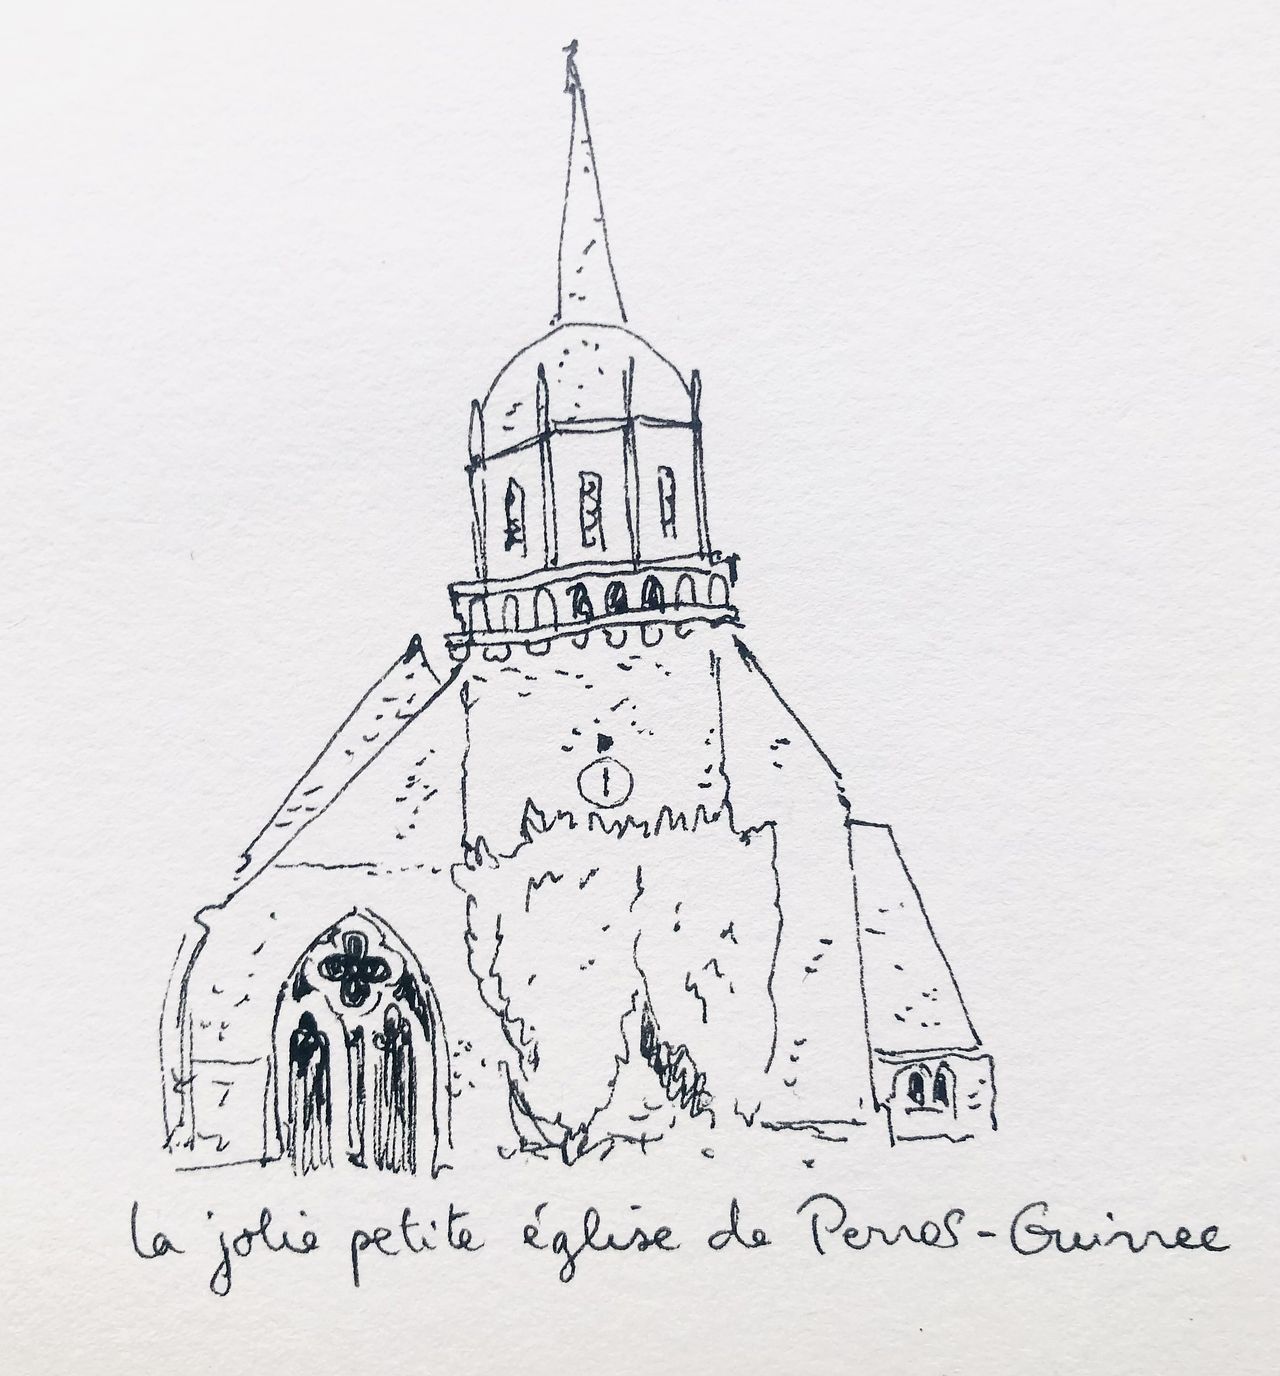 la jolie petite église de Perros-Guirrec